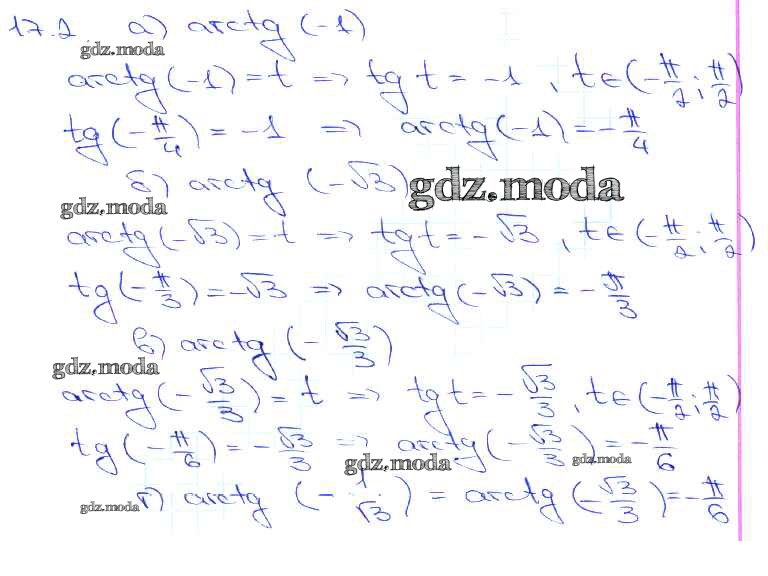 17.2 а) arctg (-1)
gdz.moda
arctg(-1) = t => tg t = -1, t∈(-π/2; π/2)
tg(-π/4) = -1 => arctg(-1) = -π/4
б) arctg (-√3)
gdz.moda
gdz.moda
arctg(-√3) = t => tg t = -√3, t∈(-π/2; π/2)
tg(-π/3) = -√3 => arctg(-√3) = -π/3
в) arctg (-√3/3)
gdz.moda
arctg(-√3/3) = t => tg t = -√3/3, t∈(-π/2; π/2)
tg(-π/6) = -√3/3 => arctg(-√3/3) = -π/6
gdz.moda
gdz.moda
г) arctg (-1/√3) = arctg(-√3/3) = -π/6
gdz.moda